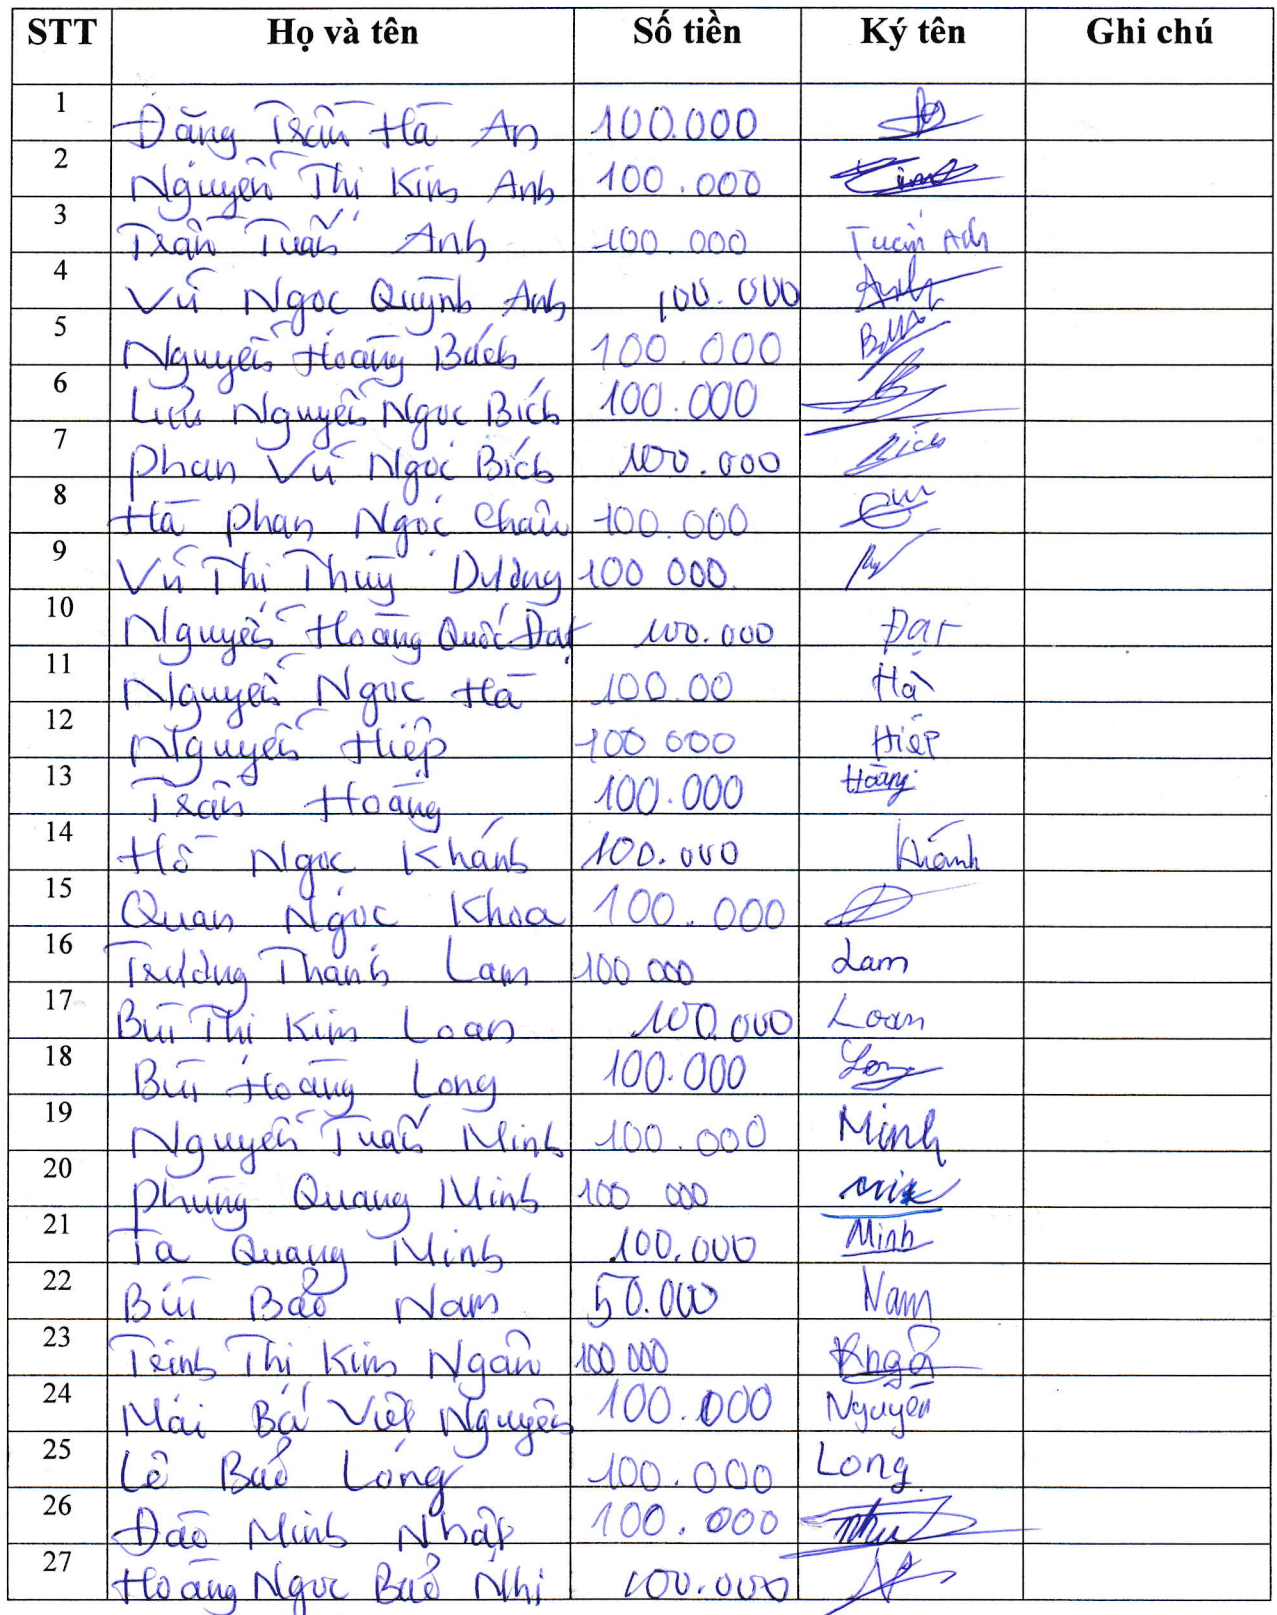 STT Họ và tên Số tiền Ký tên Ghi chú
1 Đặng Trần Hà An 100.000
2 Nguyễn Thị Kim Anh 100.000
3 Trần Tuấn Anh 100.000 Tuấn Anh
4 Vũ Ngọc Quỳnh Anh 100.000 Anh
5 Nguyễn Hoàng Bách 100.000
6 Lưu Nguyễn Ngọc Bích 100.000
7 Phan Vũ Ngọc Bích 100.000 Bích
8 Hà Phan Ngọc Châu 100.000
9 Vũ Thị Thùy Dương 100 000
10 Nguyễn Hoàng Quốc Đạt 100.000 Đạt
11 Nguyễn Ngọc Hà 100.00 Hà
12 Nguyễn Hiệp 100 000 Hiệp
13 Trần Hoàng 100.000 Hoàng
14 Hồ Ngọc Khánh 100.000 Khánh
15 Quan Ngọc Khoa 100.000
16 Trương Thanh Lam 100 000 Lam
17 Bùi Thị Kim Loan 100.000 Loan
18 Bùi Hoàng Long 100.000 Long
19 Nguyễn Tuấn Minh 100.000 Minh
20 Phùng Quang Minh 100 000
21 Tạ Quang Minh 100.000 Minh
22 Bùi Bảo Nam 50.000 Nam
23 Trịnh Thị Kim Ngân 100 000
24 Mai Bá Việt Nguyên 100.000 Nguyên
25 Lê Bảo Long 100.000 Long
26 Đào Minh Nhật 100.000
27 Hoàng Ngọc Bảo Nhi 100.000